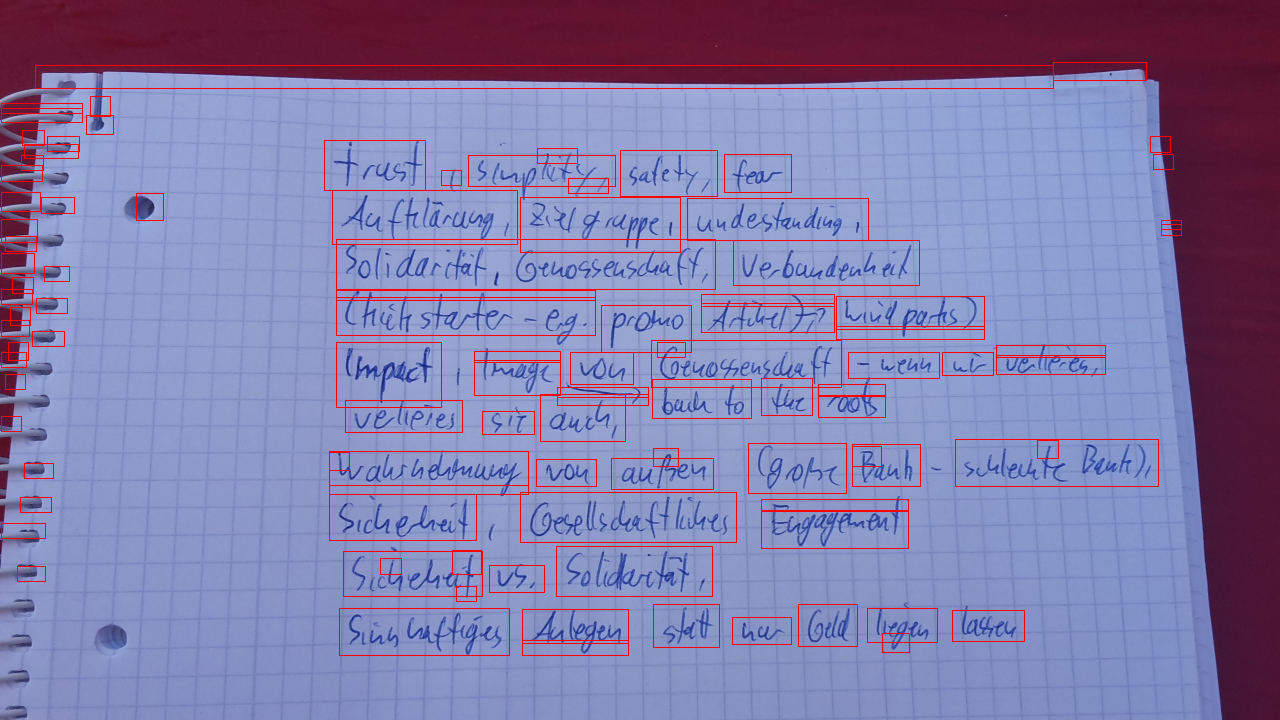 trust, simplity, safety, fear
Aufklärung, Zielgruppe, undestanding,
Solidarität, Genossenschaft, Verbundenheit
(Kickstarter - e.g. promo Artikel), windparks)
Impact, Image von Genossenschaft - wenn wir verlieres,
verlieres sie auch, back to the roots
Wahrnehmung von außen (große Bank - schlechte Bank),
Sicherheit, Gesellschaftliches Engagement
Sicherheit vs. Solidarität,
Sinnhaftiges Anlegen statt nur Geld liegen lassen